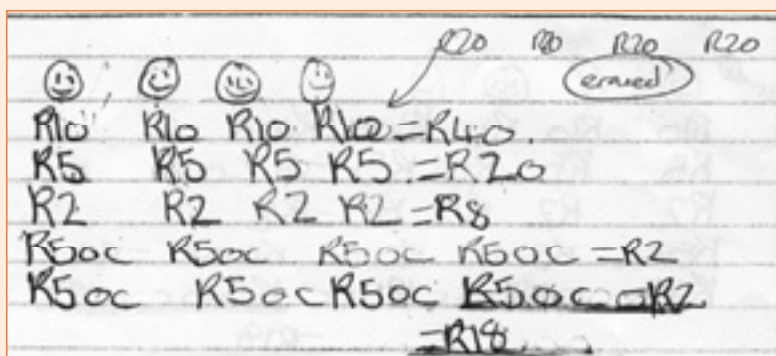 R20 R20 R20 R20
erased
R10 R10 R10 R10 =R40.
R5 R5 R5 R5 =R20
R2 R2 R2 R2 =R8
R50c R50c R50c R50c =R2
R50c R50c R50c R50c =R2
=R18